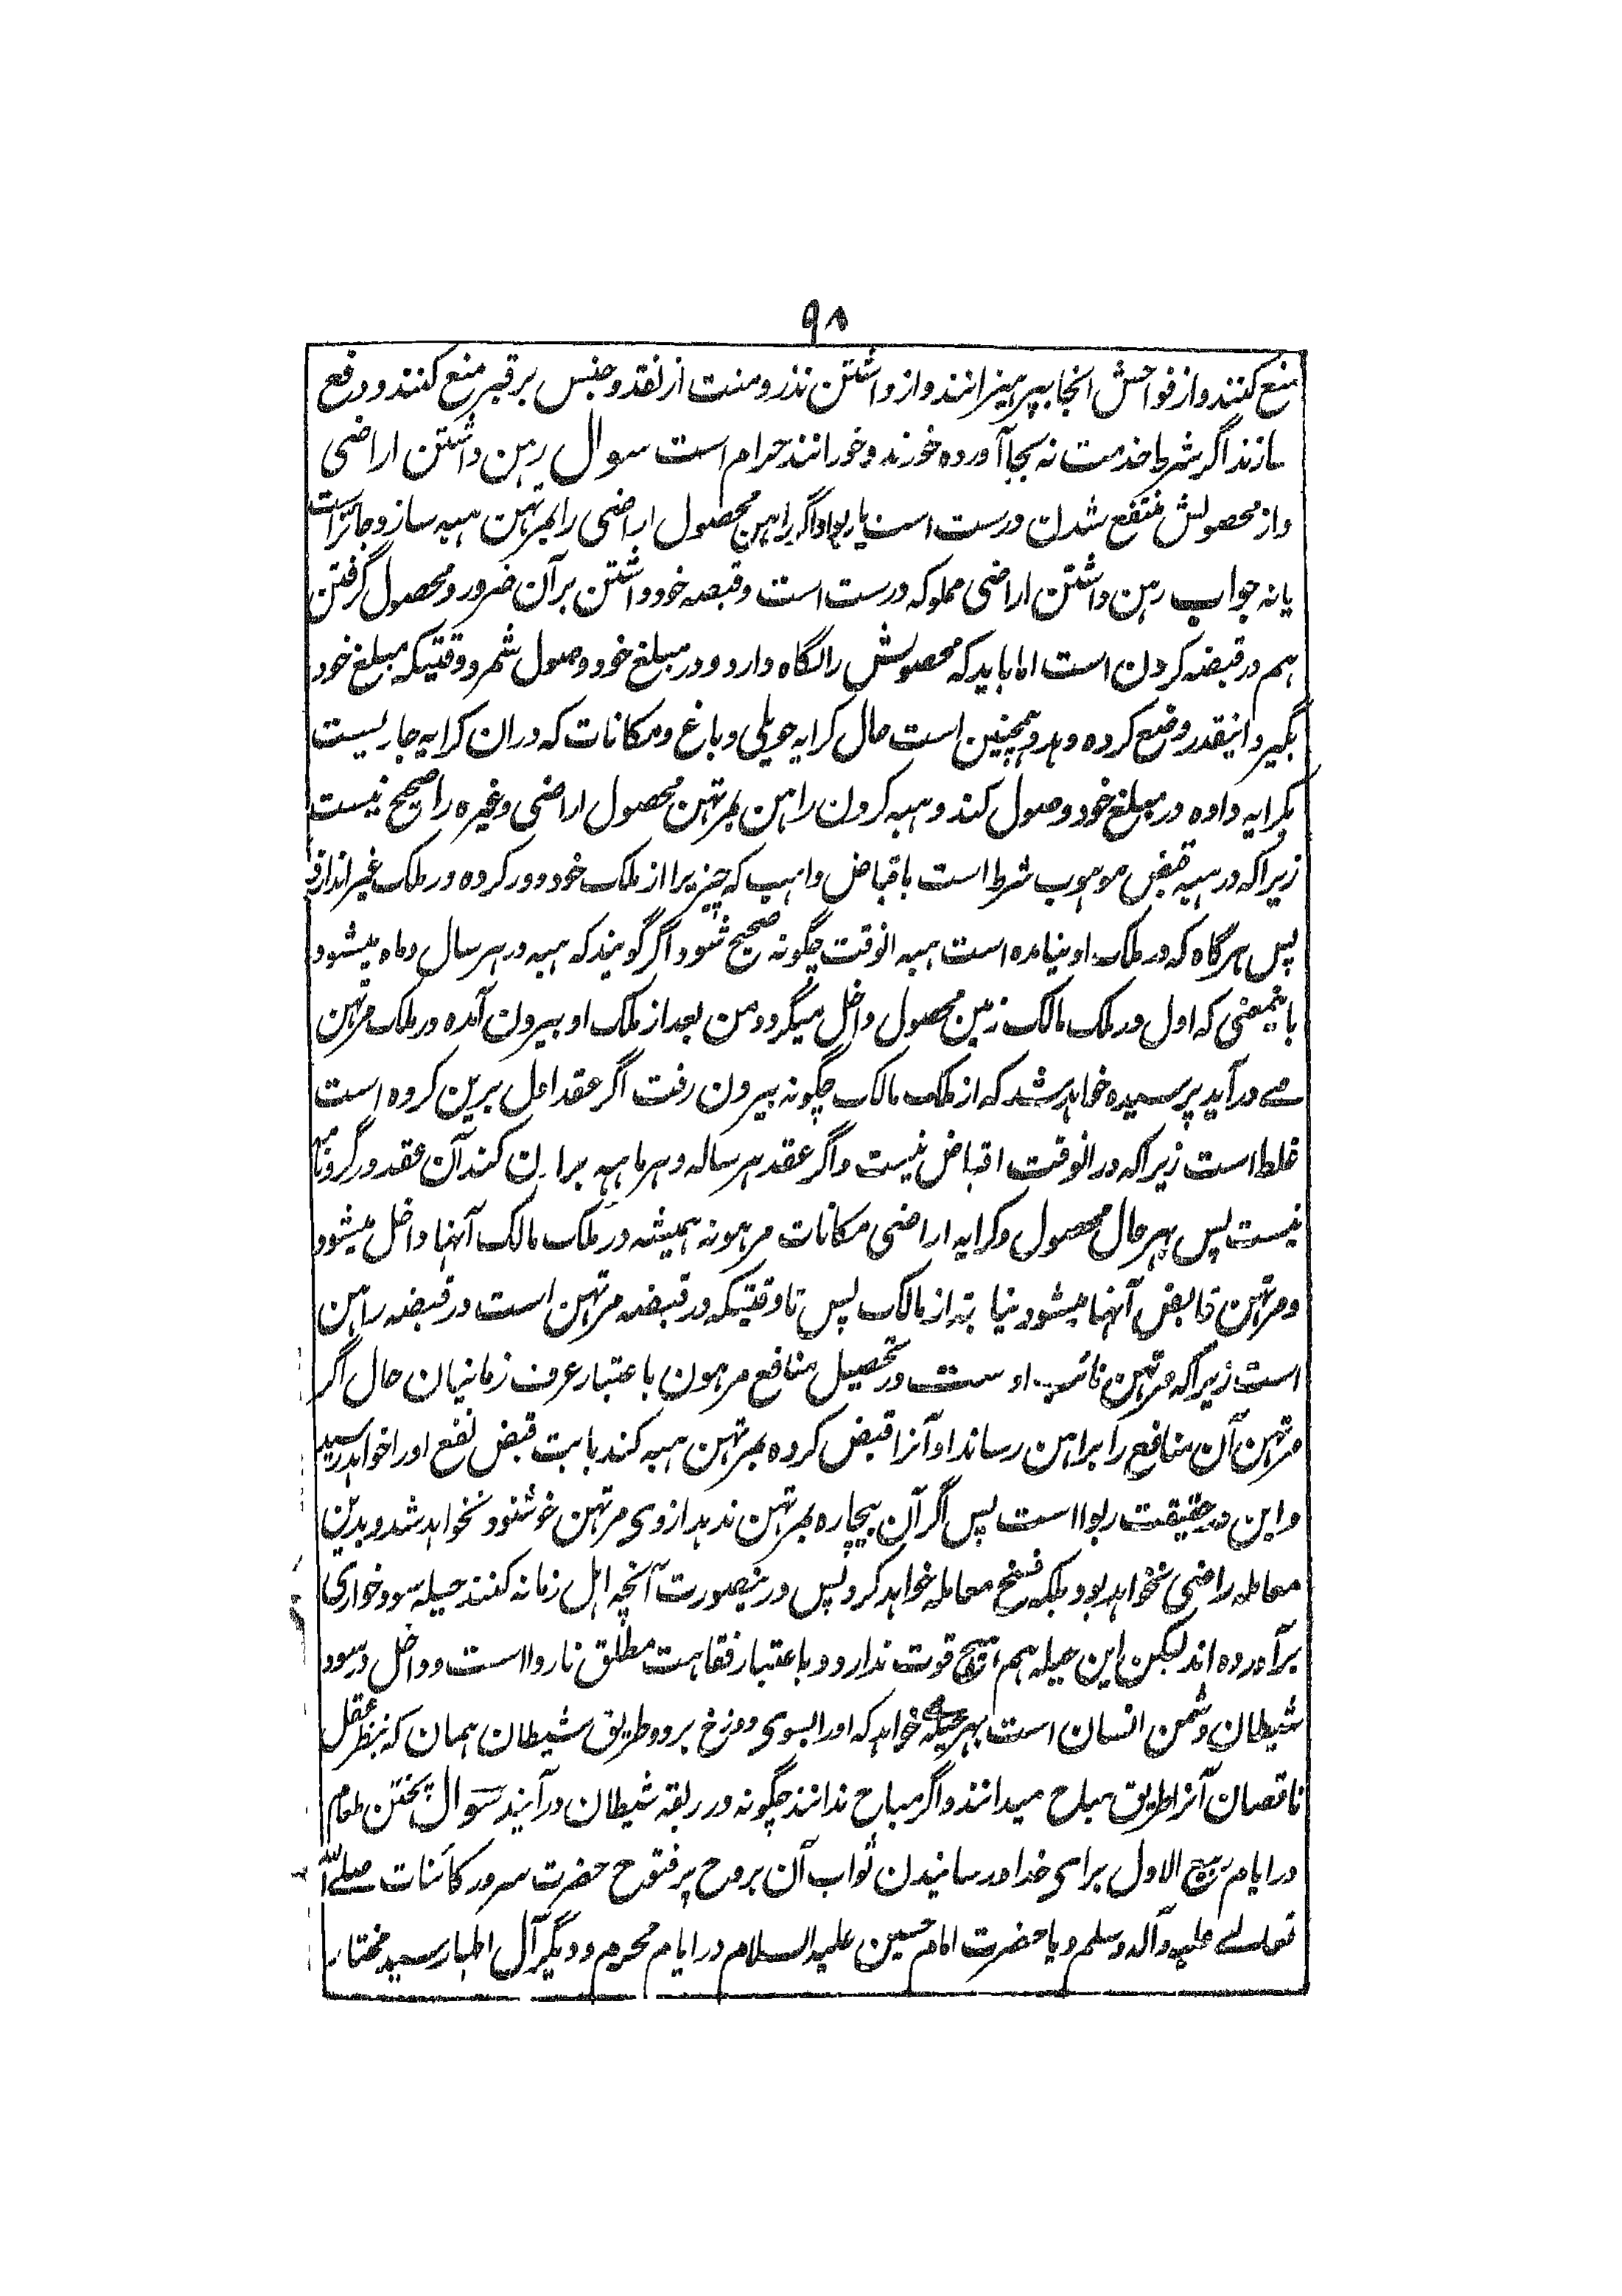 ۹۸
منع کنند و از فواحش انجا بپرهیزانند و از داشتن نذر و منت از نقد و جنس بر قبر منع کنند و دفع
سازند اگر شرط خدمت نه بجا آورده خورند و خورانند حرام است سوال رهن داشتن اراضی
و از محصولش منتفع شدن درست است یا ربوا و اگر راهن محصول اراضی را بمرتهن هبه سازد جائز است
یا نه جواب رهن داشتن اراضی مملوکه درست است و قبضه خود داشتن بر آن ضرور و محصول گرفتن
هم در قبضه کردن است اما باید که محصولش را نگاه دارد و در مبلغ خود وصول شمرد و وقتیکه مبلغ خود
بگیرد اینقدر وضع کرده دهد و همچنین است حال کرایه حویلی و باغ و مکانات که دران کرایه جاریست
بکرایه داده در مبلغ خود وصول کند و هبه کردن راهن بمرتهن محصول اراضی وغیره را صحیح نیست
زیرا که در هبه قبض موهوب شرط است باقباض واهب که چیزیرا از ملک خود دور کرده در ملک غیر اندازد
پس هرگاه که در ملک او نیامده است هبه انوقت چگونه صحیح شود اگر گویند که هبه در هر سال و ماه میشود
باینمعنی که اول در ملک مالک زمین محصول داخل میگردد من بعد از ملک او بیرون آمده در ملک مرتهن
می درآید پرسیده خواهد شد که از ملک مالک چگونه بیرون رفت اگر عقد اول برین کرده است
غلط است زیرا که در انوقت اقباض نیست و اگر عقد هر ساله و هر ماهه کنند آن عقد در گروها
نیست پس بهر حال محصول و کرایه اراضی مکانات مرهونه همیشه در ملک مالک آنها داخل میشود
و مرتهن قابض آنها میشود از مالک پس تا وقتیکه در قبضه مرتهن است در قبضه راهن
است زیرا که مرتهن نائب اوست در تحصیل منافع مرهون باعتبار عرف زمانیان حال اگر
مرتهن آن منافع را براهن رساند او آنرا قبض کرده بمرتهن هبه کند بابت قبض نفع او را خواهد رسید
و این در حقیقت ربوا است پس اگر آن بیچاره بمرتهن ندهد ازوی مرتهن خوشنود نخواهد شد و بدین
معامله راضی نخواهد بود بلکه فسخ معامله خواهد کرد پس درینصورت آنچه اهل زمانه کنند حیله سود خواری
برآورده اند لیکن این حیله هم هیچ قوت ندارد و باعتبار فقاهت مطلق ناروا است و داخل در سود
شیطان دشمن انسان است بهر حیله خواهد که او را بسوی دوزخ برد و طریق شیطان همان که بنظر عقل
ناقصان آنرا طریق مباح میدانند و اگر مباح ندانند چگونه در ربقه شیطان درآیند سوال پختن طعام
در ایام ربیع الاول برای خدا و رسانیدن ثواب آن بروح پر فتوح حضرت سرور کائنات صلی الله
تعالی علیه و آله وسلم و یا حضرت امام حسین علیه السلام در ایام محرم و دیگر آل اطهار سید مختار